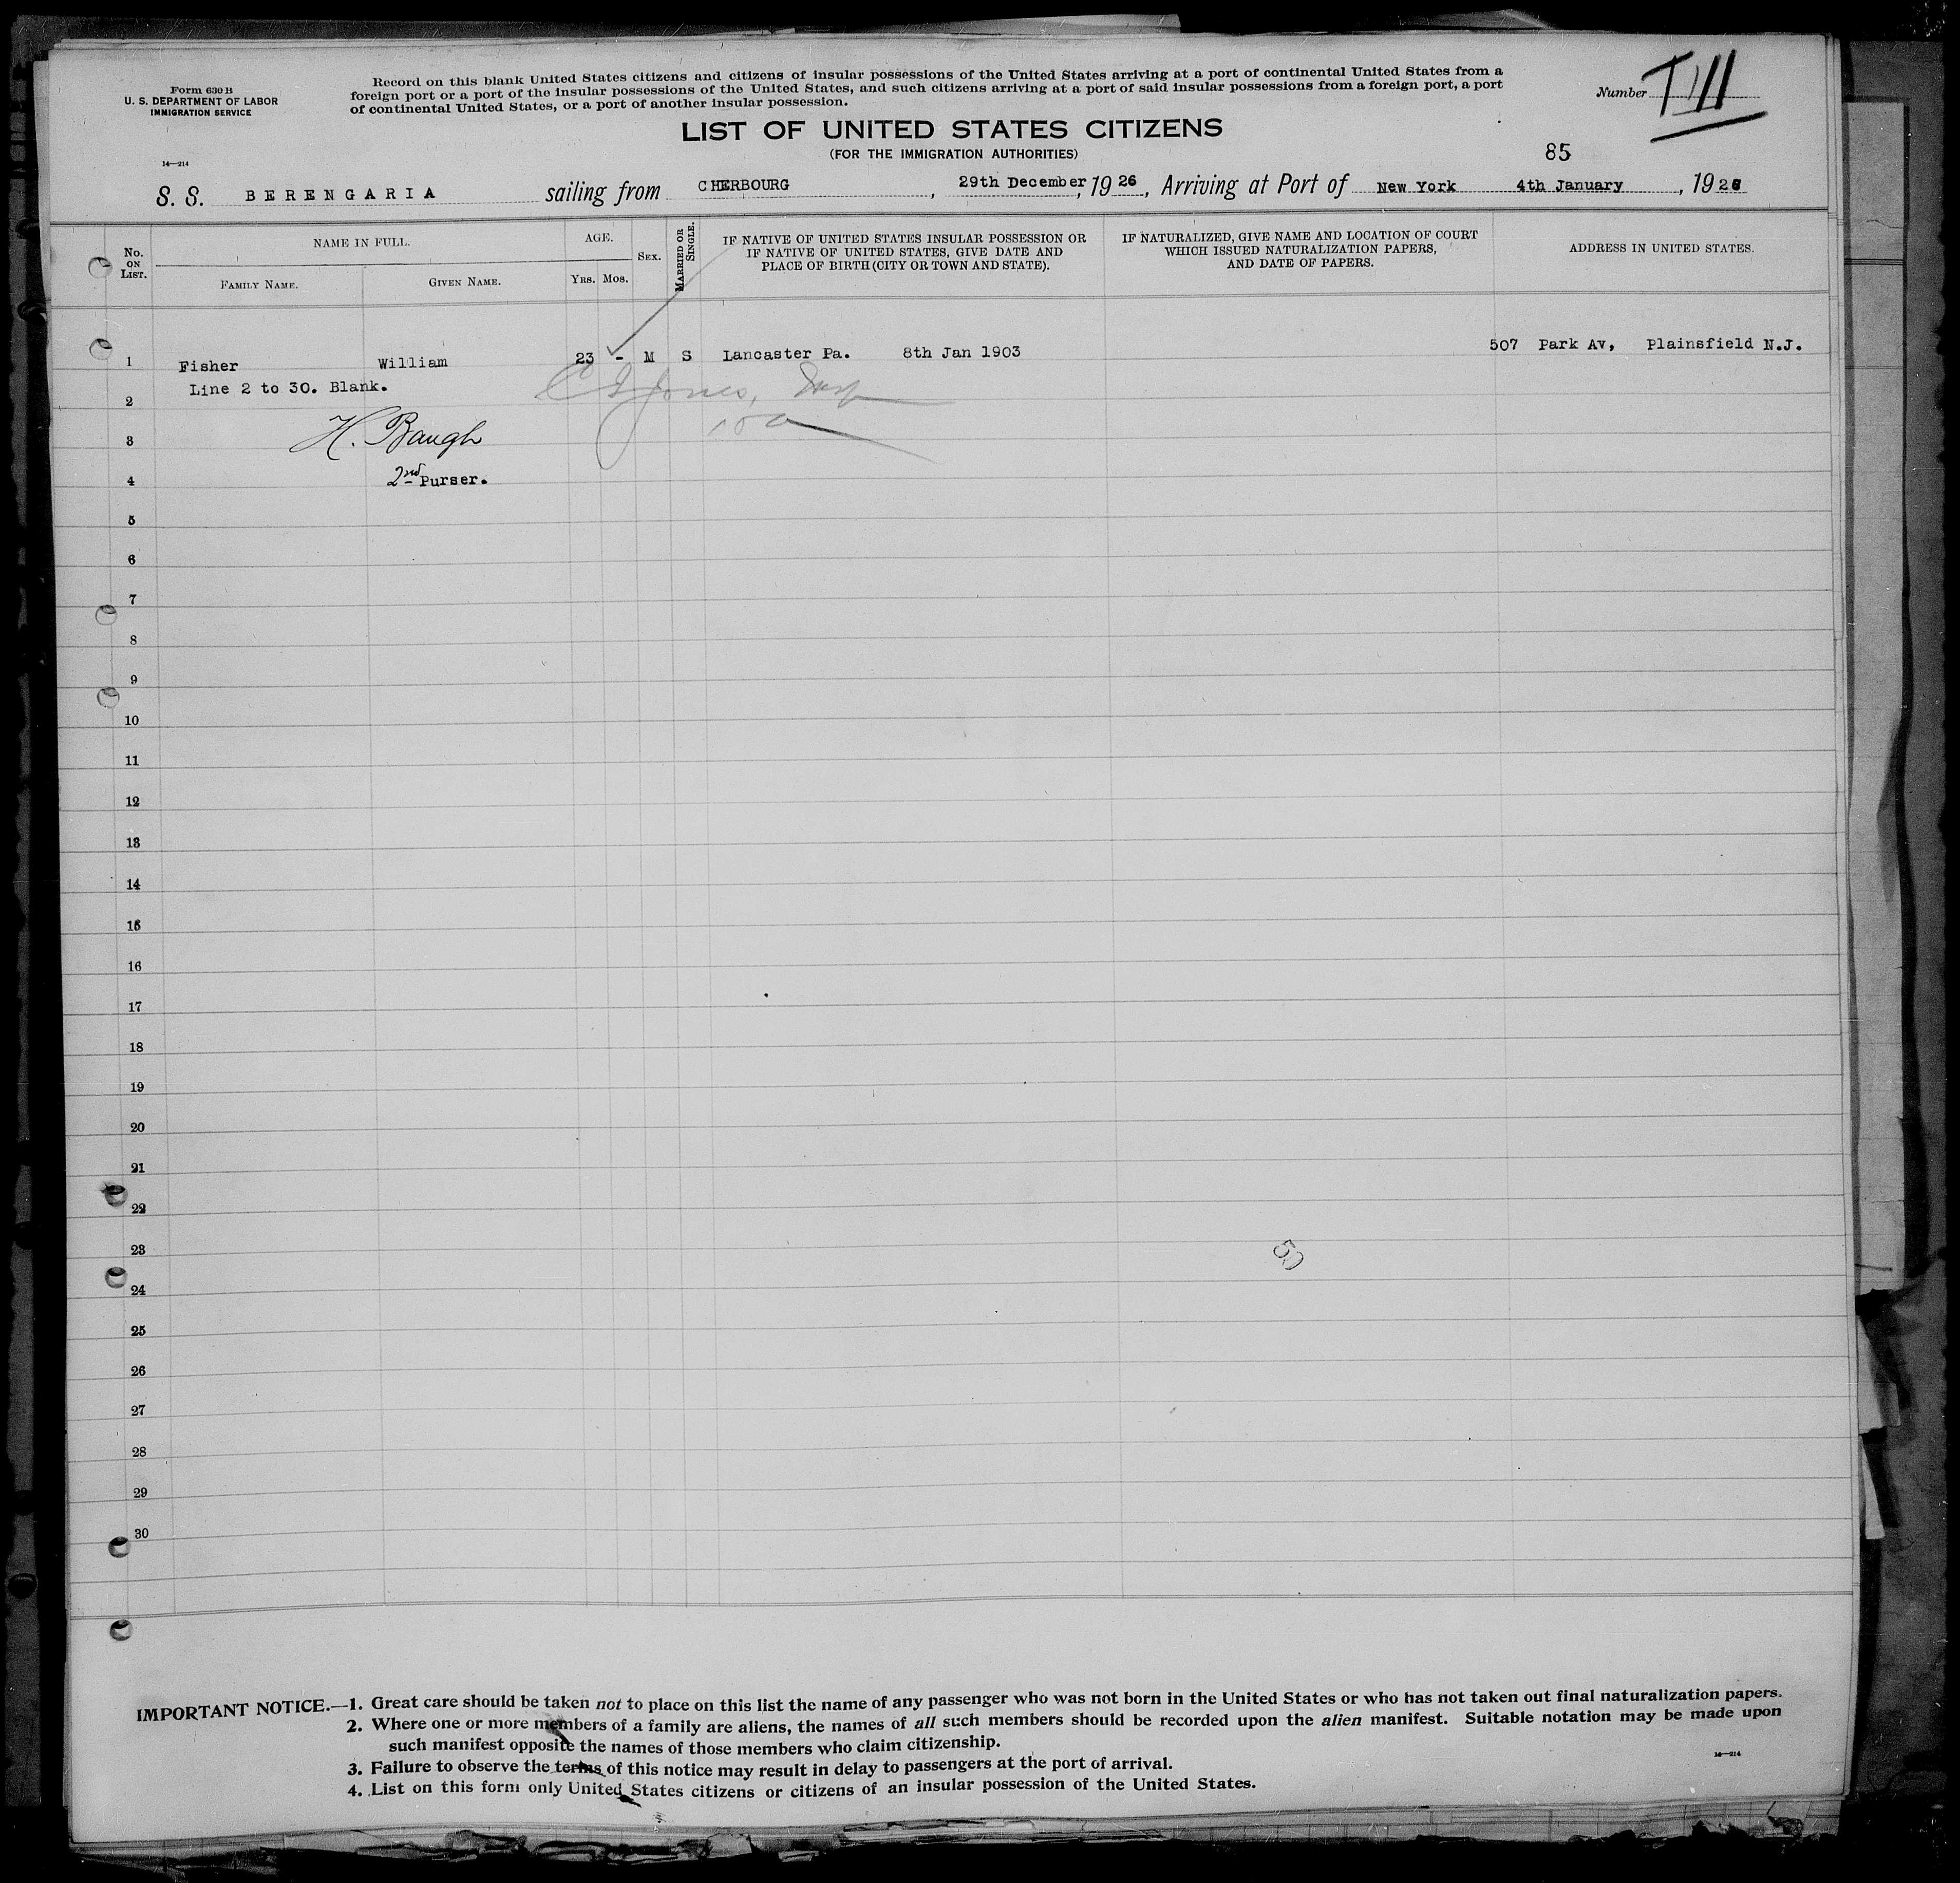 Form 630 B
U. S. DEPARTMENT OF LABOR
IMMIGRATION SERVICE
14—214
Record on this blank United States citizens and citizens of insular possessions of the United States arriving at a port of continental United States from a
foreign port or a port of the insular possessions of the United States, and such citizens arriving at a port of said insular possessions from a foreign port, a port
of continental United States, or a port of another insular possession.
Number
LIST OF UNITED STATES CITIZENS
(FOR THE IMMIGRATION AUTHORITIES)
85
S. S. BERENGARIA sailing from CHERBOURG, 29th December, 1926, Arriving at Port of New York 4th January, 192
No. ON LIST.
NAME IN FULL.
FAMILY NAME.
GIVEN NAME.
AGE.
YRS. MOS.
SEX.
MARRIED OR SINGLE.
IF NATIVE OF UNITED STATES INSULAR POSSESSION OR
IF NATIVE OF UNITED STATES, GIVE DATE AND
PLACE OF BIRTH (CITY OR TOWN AND STATE).
IF NATURALIZED, GIVE NAME AND LOCATION OF COURT
WHICH ISSUED NATURALIZATION PAPERS,
AND DATE OF PAPERS.
ADDRESS IN UNITED STATES.
1 Fisher William 23 - M S Lancaster Pa. 8th Jan 1903 507 Park Av, Plainsfield N.J.
Line 2 to 30. Blank.
2
3 H. Baugh
4 2nd Purser.
5
6
7
8
9
10
11
12
13
14
15
16
17
18
19
20
21
22
23
24
25
26
27
28
29
30
IMPORTANT NOTICE.—1. Great care should be taken not to place on this list the name of any passenger who was not born in the United States or who has not taken out final naturalization papers.
2. Where one or more members of a family are aliens, the names of all such members should be recorded upon the alien manifest. Suitable notation may be made upon
such manifest opposite the names of those members who claim citizenship.
3. Failure to observe the terms of this notice may result in delay to passengers at the port of arrival.
4. List on this form only United States citizens or citizens of an insular possession of the United States.
14—214